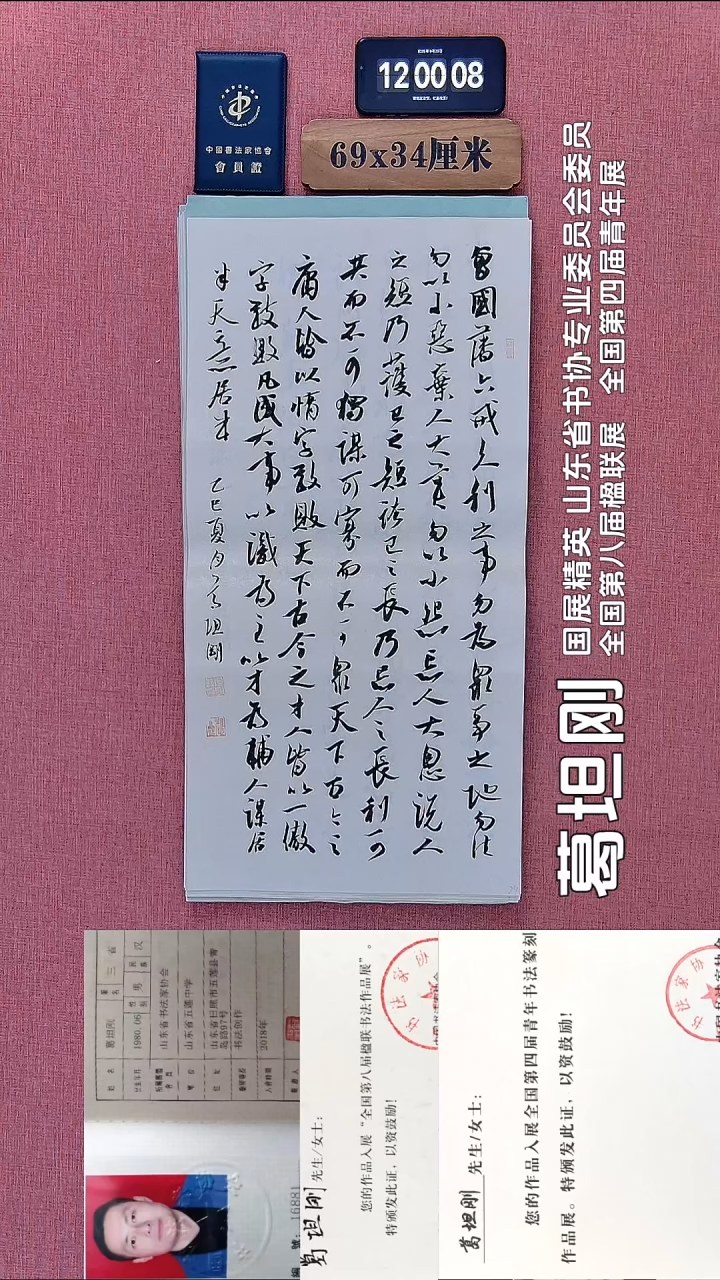 中國書法家協會
會員證
12 00 08
69x34厘米
曾國藩六戒久利之事勿為眾爭之地勿往
勿以小惡棄人大美勿以小怨忘人大恩說人
之短乃護己之短誇己之長乃忌人之長利可
共而不可獨謀可寡而不可眾天下古今之
庸人皆以惰字致敗天下古今之才人皆以一傲
字致敗凡成大事以識為主以才為輔人謀居
半天意居半 乙巳夏月葛坦剛
国展精英 山东省书协专业委员会委员
全国第八届楹联展 全国第四届青年展
葛坦刚
姓名 葛坦刚 三省
出生年月 1980.06 性别 男 民族 汉
山东省书法家协会
山东省五莲中学
山东省日照市五莲县青
岛路97号
书法创作
2018年
编號:16881
葛坦刚 先生/女士:
您的作品入展“全国第八届楹联书法作品展”。
特颁发此证,以资鼓励!
葛坦刚 先生/女士:
您的作品入展全国第四届青年书法篆刻
作品展。特颁发此证,以资鼓励!